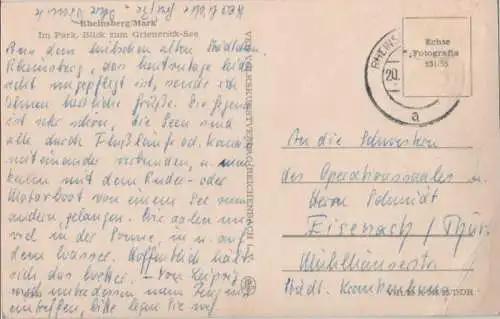 Rheinsberg/Mark
Im Park, Blick zum Grienerick-See
Aus dem hübschen alten Städtchen
Rheinsberg, das heutzutage leider
sehr ungepflegt ist, sende ich
Ihnen herzliche Grüße. Die Gegend
ist sehr schön, die Seen sind
alle durch Flußläufe od. Kanäle
miteinander verbunden, u. man
kann mit dem Ruder- oder
Motorboot von einem See zum
andern gelangen. Wir aalen uns
viel in der Sonne, in u. auf
dem Wasser. Hoffentlich hält
sich das Wetter. – Von Leipzig
wird unterdessen mein Zeug
eintreffen, bitte legen Sie es
VEB VOLKSKUNSTVERLAG REICHENBACH
RHEINS
20.
a
Echte
Fotografie
An die Schwestern
des Operationssaales u.
Herrn Schmidt
Eisenach / Thür.
Mühlhäuserstr.
Städt. Krankenhaus